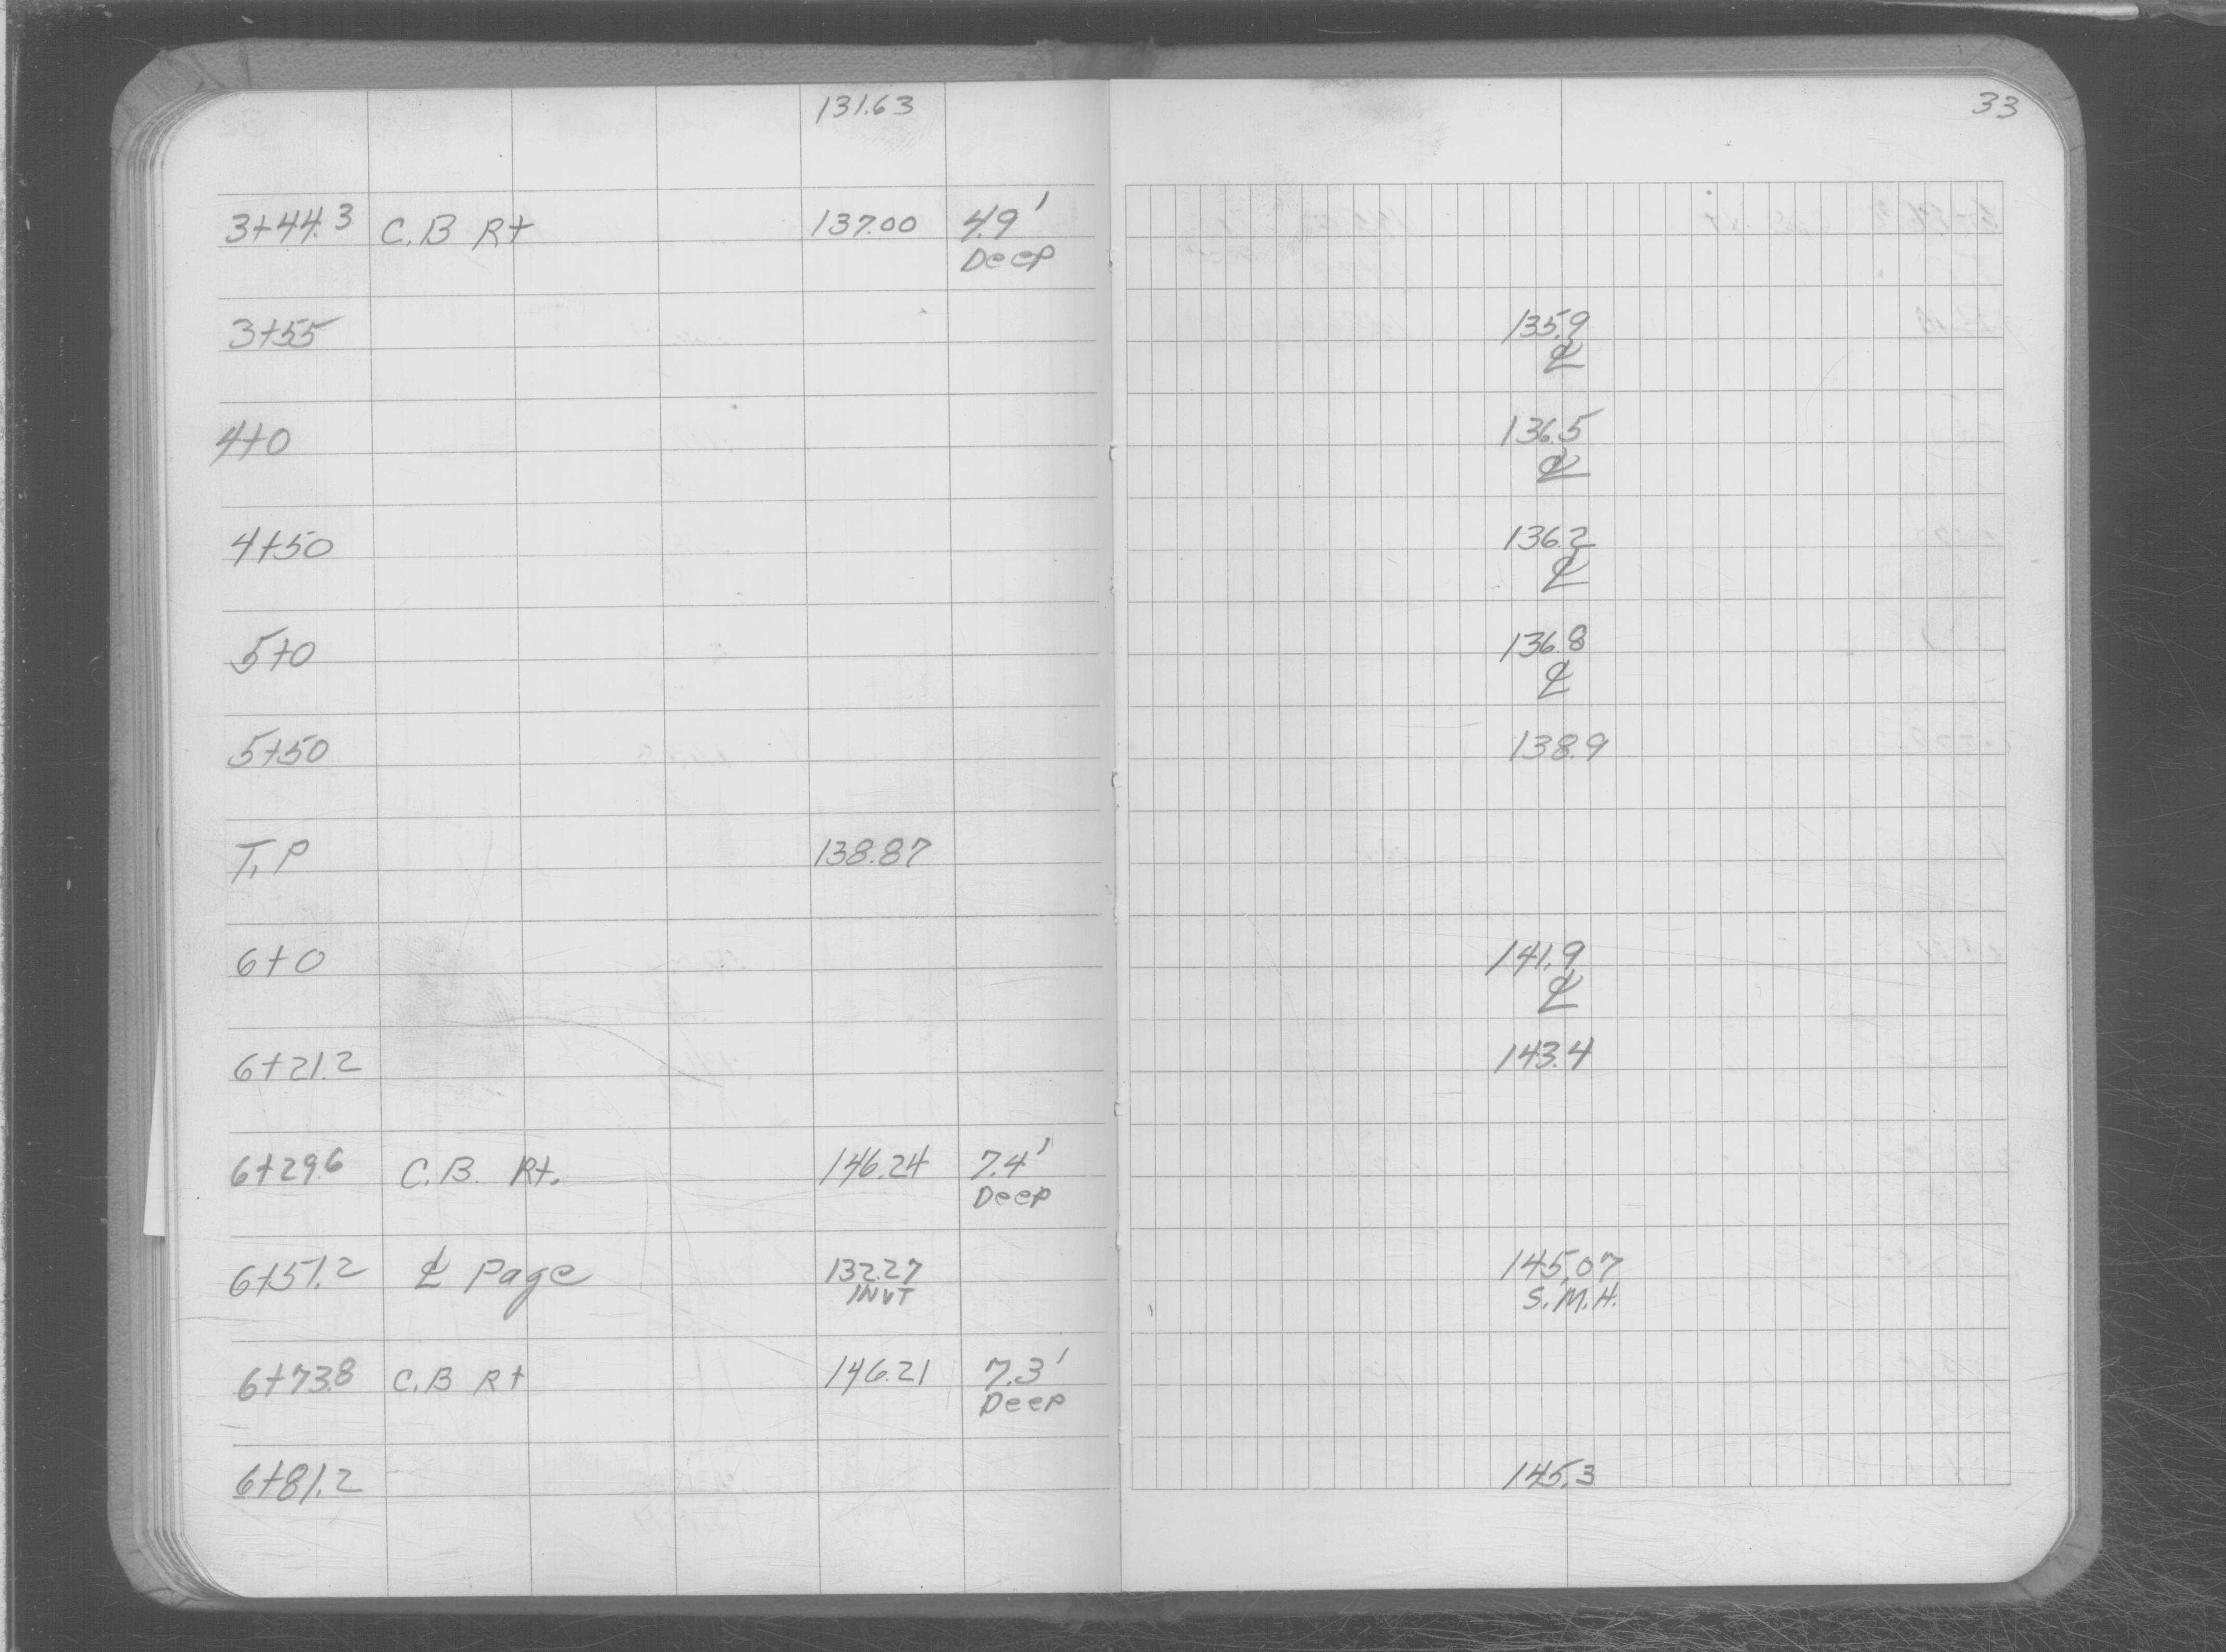 131.63
33
3+44.3 C.B Rt 137.00 4.9'
Deep
3+55 135.9
℄
4+0 136.5
℄
4+50 136.2
℄
5+0 136.8
℄
5+50 138.9
T.P 138.87
6+0 141.9
℄
6+21.2 143.4
6+29.6 C.B. Rt. 146.24 7.4'
Deep
6+51.2 ℄ Page 132.27 145.07
INVT S.M.H.
6+73.8 C.B Rt 146.21 7.3'
Deep
6+81.2 145.3